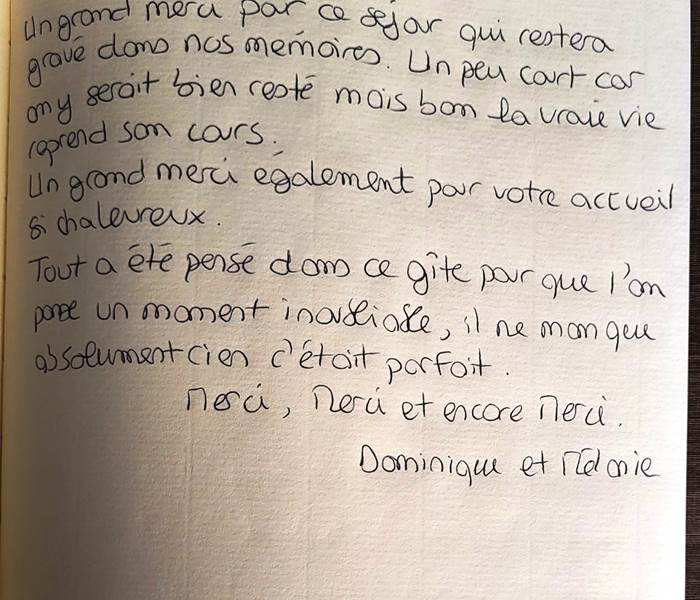 Un grand merci par ce séjour qui restera
gravé dans nos mémoires. Un peu court car
on y serait bien resté mais bon la vraie vie
reprend son cours.
Un grand merci également pour votre accueil
si chaleureux.
Tout a été pensé dans ce gîte pour que l'on
passe un moment inoubliable, il ne manque
absolument rien c'était parfait.
Merci, Merci et encore Merci.
Dominique et Mélanie